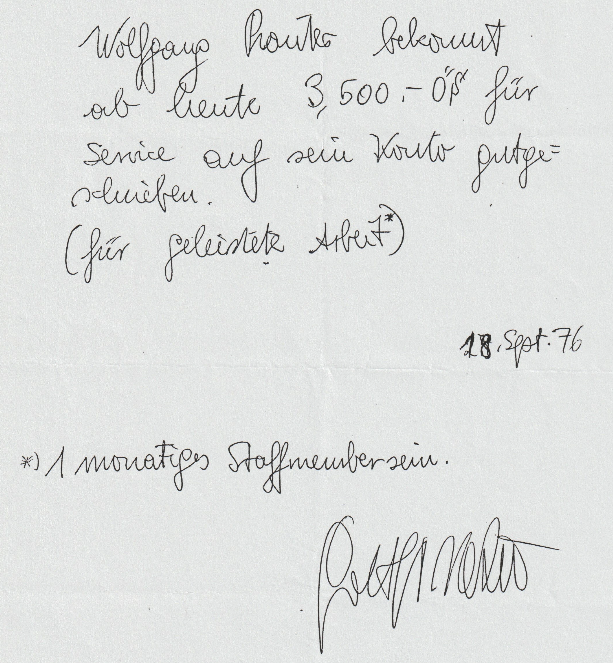 Wolfgang bekommt
ab heute 3,500.- ÖS für
Service auf sein Konto gutge=
schrieben.
(für geleistete Arbeit*)
18. Sept. 76
*) 1 monatiges Staffmembersein.